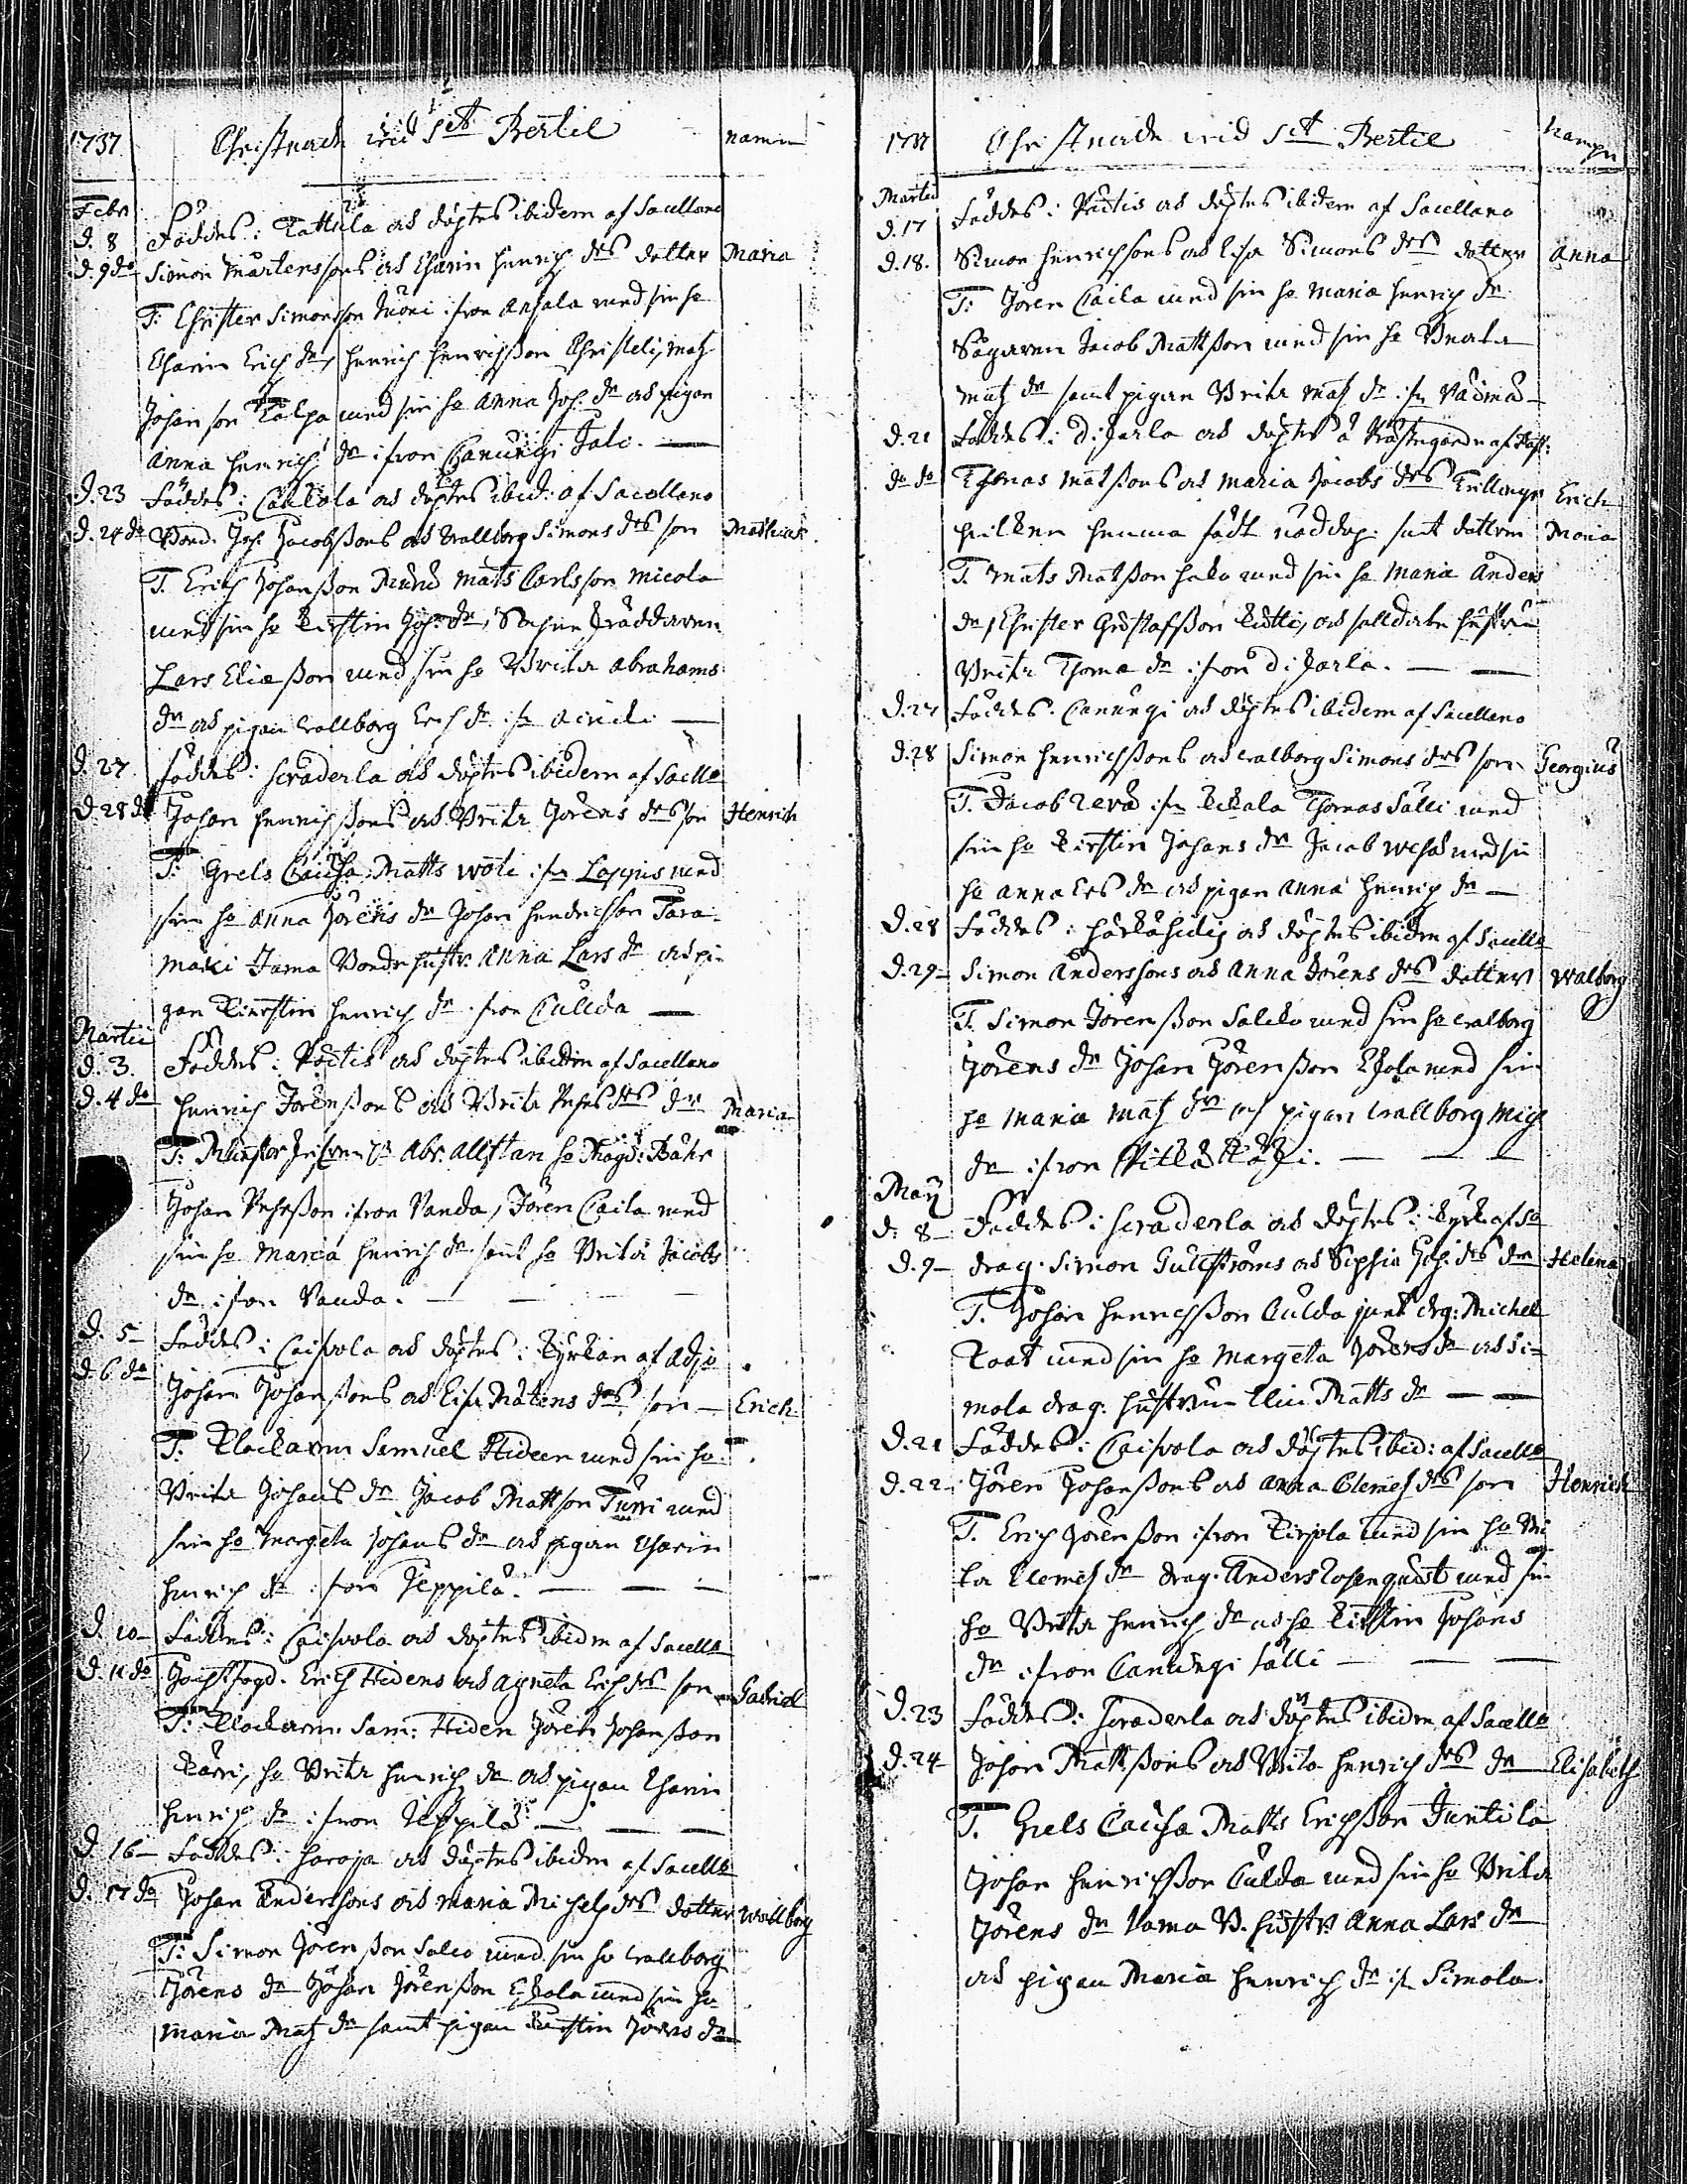 1737 Christnade wid Sct Bertil namn
Febr
d. 8 Föddes i Kattula och döptes ibidem af Sacellano
d. 9 do Simon Mårtenssons och Charin Henrich drs dotter Maria
T: Christer Simonsson Muoni ifrån Ansala med sin ho
Charin Erich dr, Henrich Henrichsson Matz
Johansson med sin ho Anna Joh. dr och pigan
Anna Henrich dr ifrån Canungi Tali.
d. 23 Föddes i Caukola och döptes ibid: af Sacellano
d. 24 do Bond. Joh. Jacobssons och Wallborg Simons drs son Mathias
T. Erich Johansson Mats Carlsson Micola
med sin ho Kirstin Joh: dr, Skräddaren
Lars Eliæsson med sin ho Brita Abrahams
dr och pigan Wallborg Erich dr ifr
d. 27 Föddes i Scraderla och döptes ibidem af Sacello
d. 28 do Johan Henrichssons och Brita Jörens drs son Henrich
T: Grels Causa, Matts ifr Loppis med
sin ho Anna Jörens dr Johan Hendrichsson Tara-
maki Jama Bonde hustr. Anna Lars dr och pi-
gan Kierstin Henrich dr ifrån Cullda
Martii
d. 3. Föddes i Pöitis och döptes ibidem af Sacellano
d. 4 do Henrich Jörenssons och Brita drs dr Maria
T: Abr. Allstan ho Magd: Bähr
Johan ifrån Vanda, Jören Caila med
sin ho Maria Henrich dr samt ho Brita Jacobs
dr ifrån Vanda.
d. 5 Föddes i Caivola och döptes i Kyrkan af Adjo
d. 6 do Johan Johanssons och Lisa Mårtens drs son Erich
T. Klockaren Samuel Hideen med sin ho
Brita Johans dr Jacob Mattson Turri med
sin ho Margeta Johans dr och pigan Charin
Henrich dr ifrån Jeppilä.
d. 10 Föddes i Caivola och döptes ibidm af Sacello
d. 11 do Erich Hidens och Agneta Erich drs son Gabriel
T: Klockaren Sam: Hiden Jören Johansson
Karri, ho Brita Henrich dr och pigan Charin
Henrich dr ifrån Jeppilä
d. 16 Föddes i Haroja och döptes ibidm af Sacello
d. 17 do Johan Anderssons och Maria Michels drs dotter Wallborg
T: Simon Jörensson Salco med sin ho Wallborg
Jörens dr Johan Jörensson Eskola med sin ho
Maria Matz dr samt pigan Kirstin Jörens dr
1737 Christnade wid Sct Bertil Nampn
Martii
d. 17 Föddes i Pöitis och döptes ibidem af Sacellano
d. 18. Simon Henrichssons och Lisa Simons drs dotter Anna
T: Jören Caila med sin ho Maria Henrich dr
Sågaren Jacob Mattsson med sin ho Beata
Matz dr samt pigan Brita Matz dr ifr
d. 21 Föddes i Dijarla och döptes å Prästegården af
do do Thomas Matssons och Maria Jacobs drs Twillingar Erich
hemma samt dottren Maria
T. Mats Matsson Hako med sin ho Maria Anders
dr, Christer Gustafsson och Solldate hustrun
Brita Thomæ dr ifrån Dijarla.
d. 27 Föddes i Canungi och döptes ibidem af Sacellano
d. 28 Simon Henrichssons och Walborg Simons drs son Georgius
T. Jacob ifr Thomas Tälli med
sin ho Kirstin Johans dr Jacob med sin
ho Anna Ers dr och pigan Anna Henrich dr
d. 28 Föddes i och döptes ibidem af Sacello
d. 29 Simon Anderssons och Anna Jörens drs dotter Walborg
T. Simon Jörensson Salcko med sin ho Walborg
Jörens dr Johan Jörensson Eskola med sin
ho Maria Matz dr och pigan Wallborg Mich
dr ifrån
Maij
d. 8 Föddes i Scraderla och döptes i Kyrk af So
d. 9 Drag. Simon Gullströms och Sophia Joh. drs dr Helena
T. Johan Henrichsson Culda samt drg: Michel
Koat med sin ho Margeta Jörens dr och Si-
mola drag. hustrun Elin Matts dr
d. 21 Föddes i Caivola och döptes ibid: af Sacello
d. 22 Jören Johanssons och Anna Clemes drs son Henrich
T. Erich Jörensson ifrån Kirjola med sin ho Bri
ta Clemes dr drag. Anders Rosenquist med sin
ho Brita Henrich dr och ho Kirstin Johans
dr ifrån Canungi Tälli
d. 23 Föddes i Scraderla och döptes ibidm af Sacello
d. 24 Johan Mattssons och Brita Henrich drs dr Elisabeth
T. Grels Causa Matts Erichsson Juntila
Johan Henrichsson Culda med sin ho Brita
Jörens dr Jama B. hustr: Anna Lars dr
och pigan Maria Henrich dr if Simola.